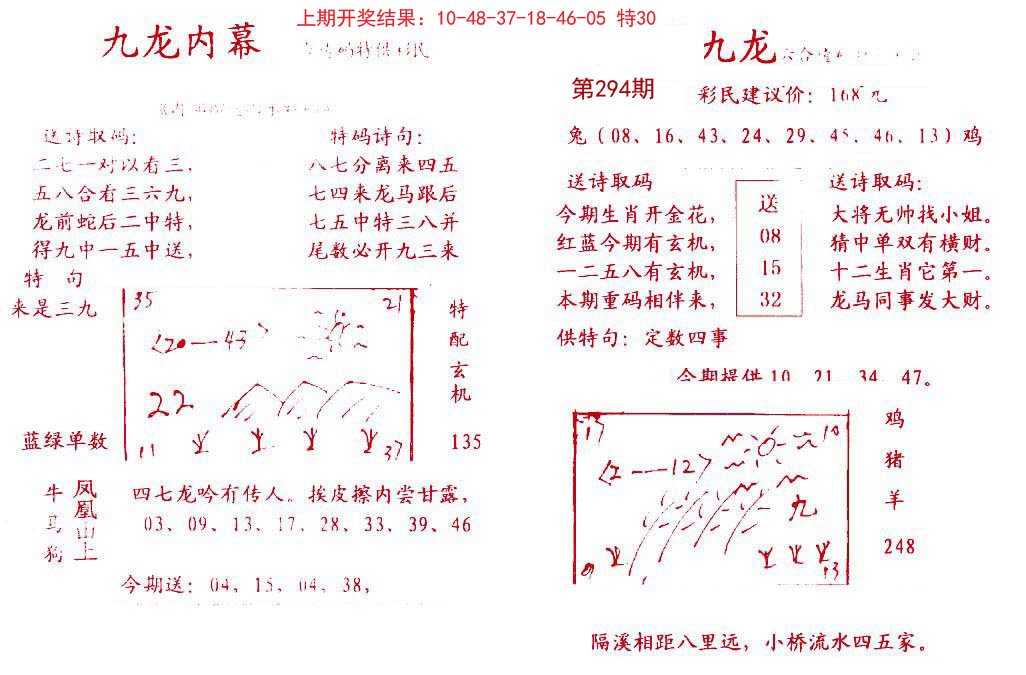 上期开奖结果：10-48-37-18-46-05 特30
九龙内幕
码特供彩民
送诗取码：
二七一对以看三，
五八合看三六九，
龙前蛇后二中特，
得九中一五中送，
特码诗句：
八七分离来四五
七四来龙马跟后
七五中特三八并
尾数必开九三来
特 句
来是三九
蓝绿单数
35
21
<20——43>
22
11
37
特配玄机
135
牛
马
狗
凤凰山上
四七龙吟有传人。挨皮擦内尝甘露，
03、09、13、17、28、33、39、46
今期送：04，15，04，38，
九龙
六合
第294期
彩民建议价：168元
兔（08、16、43、24、29、45、46、13）鸡
送诗取码
今期生肖开金花，
红蓝今期有玄机，
一二五八有玄机，
本期重码相伴来，
送
08
15
32
送诗取码：
大将无帅找小姐。
猜中单双有横财。
十二生肖它第一。
龙马同事发大财。
供特句：定数四事
今期提供10、21、34、47。
10
<2——12>
九
鸡
猪
羊
248
隔溪相距八里远，小桥流水四五家。